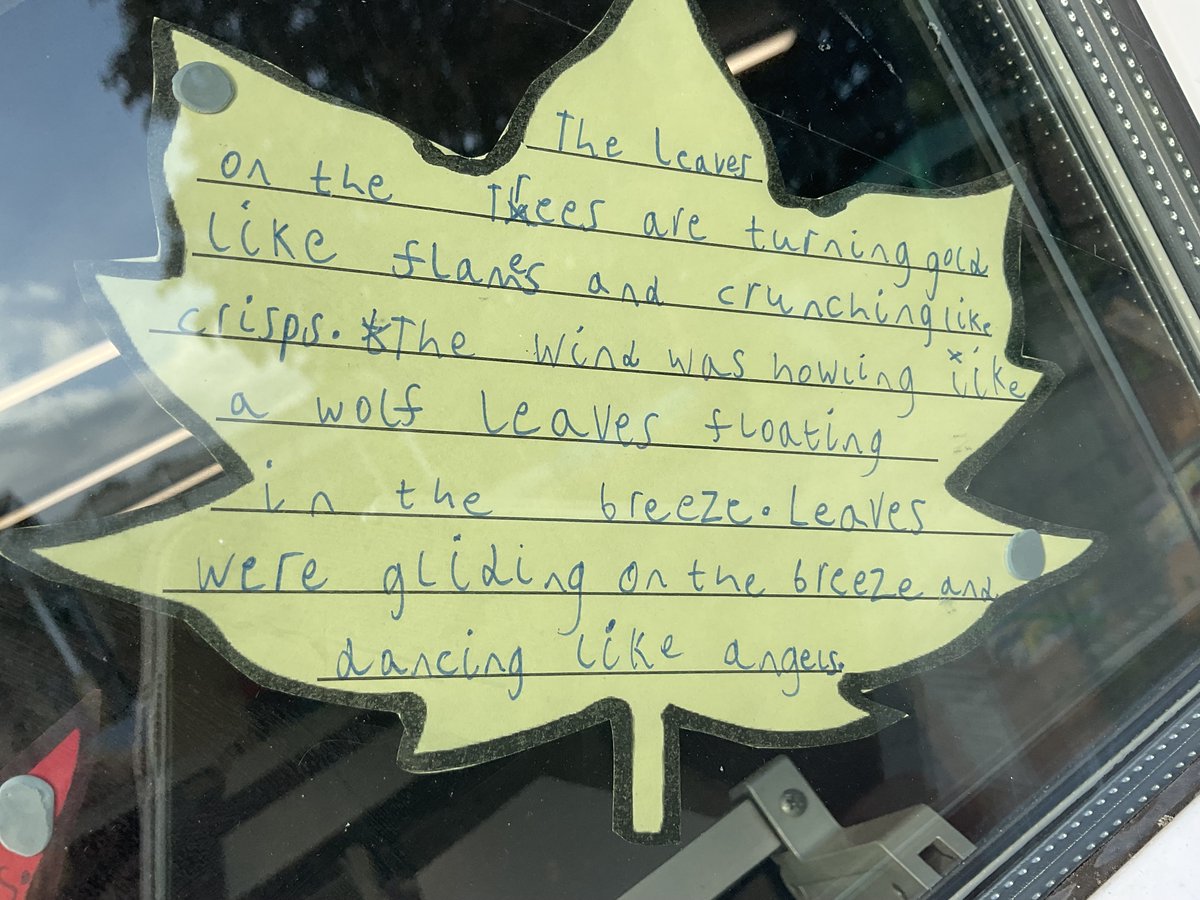 The leaves
on the Trees are turning gold
like flames and crunching like
crisps. The wind was howling like
a wolf leaves floating
in the breeze. Leaves
were gliding on the breeze and
dancing like angels.